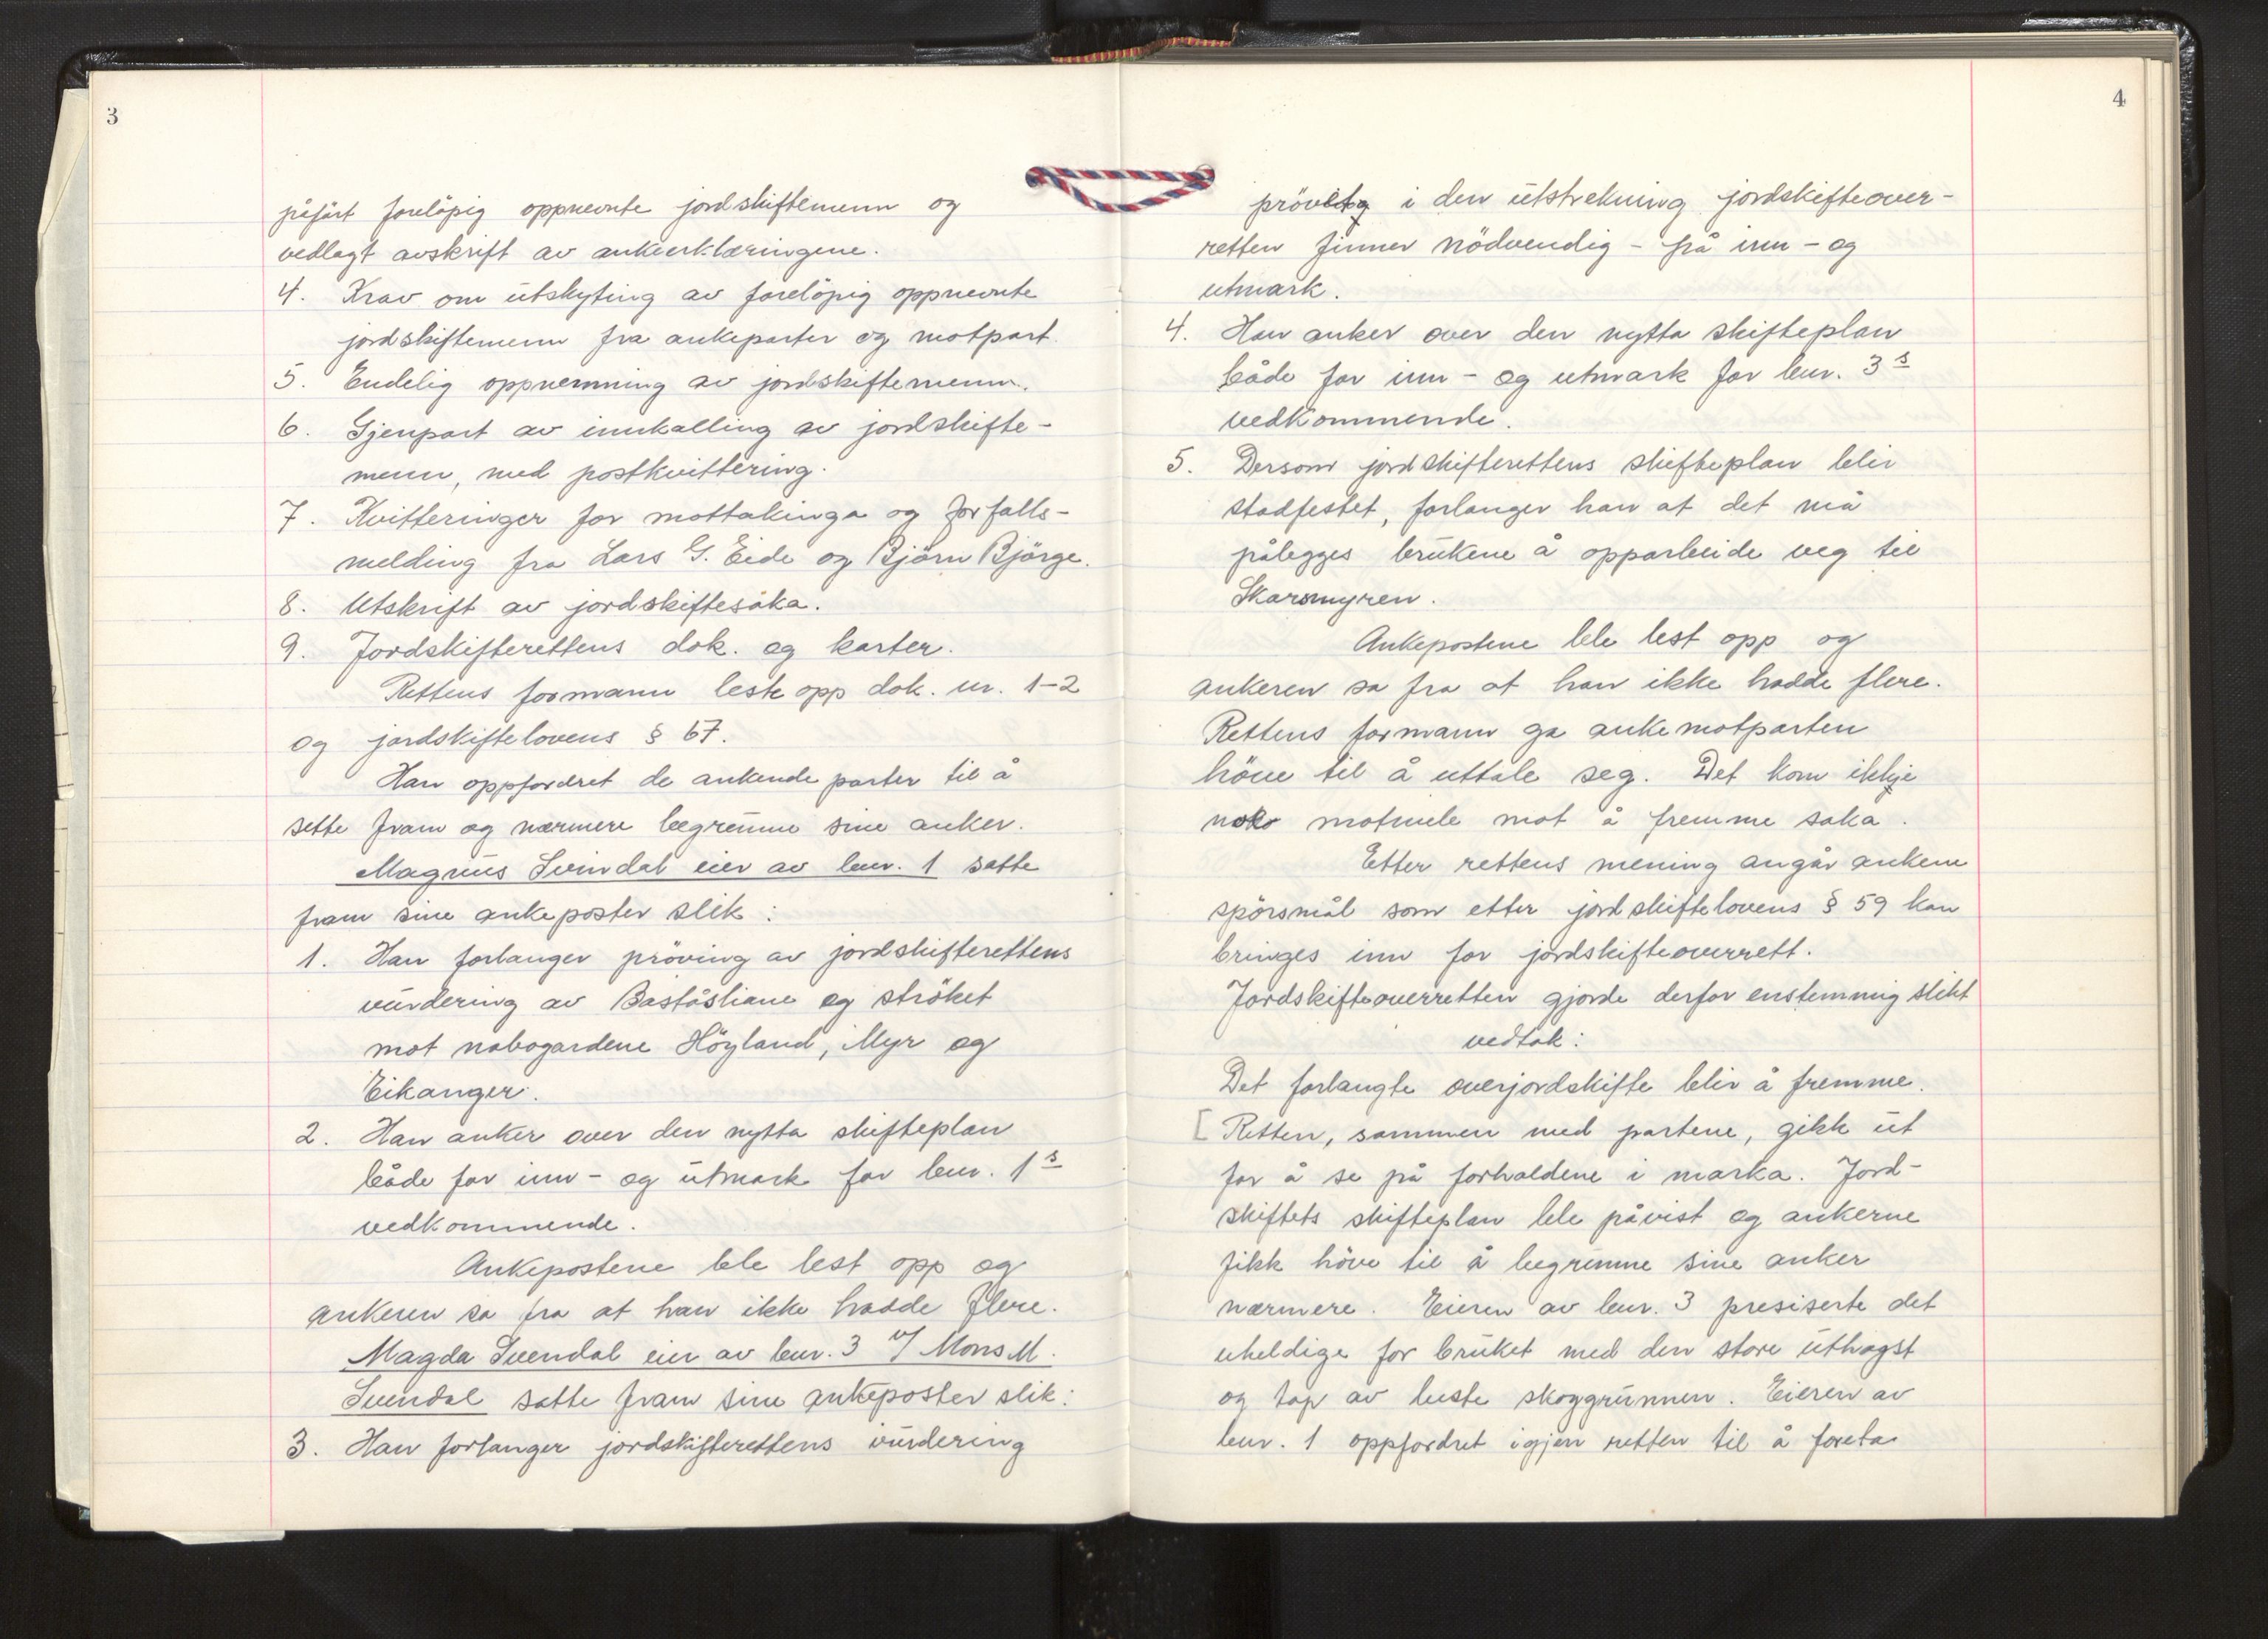 3
påført foreløpig oppnevnte jordskiftemenn og
vedlagt avskrift av ankeerklæringene.
4. Krav om utskyting av foreløpig oppnevnte
jordskiftemenn fra ankeparter og motpart.
5. Endelig oppnemning av jordskiftemenn.
6. Gjenpart av innkalling av jordskifte-
menn, med postkvittering.
7. Kvitteringer for mottakinga og forfalls-
melding fra Lars G. Eide og Björn Björge.
8. Utskrift av jordskiftesaka.
9. Jordskifterettens dok. og karter.
Rettens formann leste opp dok. nr. 1-2
og jordskiftelovens § 67.
Han oppfordret de ankende parter til å
sette fram og nærmere begrunne sine anker.
Magnus Svendal eier av bnr. 1 satte
fram sine ankeposter slik:
1. Han forlanger pröving av jordskifterettens
vurdering av Baståsliane og ströket
mot nabogardene Höyland, Myr og
Eikanger.
2. Han anker over den nytta skifteplan
både for inn- og utmark for bnr. 1s
vedkommende.
Ankepostene ble lest opp og
ankeren sa fra at han ikke hadde flere.
Magda Svendal eier av bnr. 3 v/ Mons M.
Svendal satte fram sine ankeposter slik:
3. Han forlanger jordskifterettens vurdering
4
prövet i den utstrekning jordskifteover-
retten finner nödvendig - på inn- og
utmark.
4. Han anker over den nytta skifteplan
både for inn- og utmark for bnr. 3s
vedkommende.
5. Dersom jordskifterettens skifteplan blir
stadfestet, forlanger han at det må
pålegges brukene å opparbeide veg til
Skarsmyren.
Ankepostene ble lest opp og
ankeren sa fra at han ikke hadde flere.
Rettens formann ga ankemotparten
höve til å uttale seg. Det kom ikkje
noko motmele mot å fremme saka.
Etter rettens mening angår ankene
spörsmål som etter jordskiftelovens § 59 kan
bringes inn for jordskifteoverrett.
Jordskifteoverretten gjorde derfor enstemmig slikt
vedtak:
Det forlangte overjordskifte blir å fremme.
[ Retten, sammen med partene, gikk ut
for å se på forholdene i marka. Jord-
skiftets skifteplan ble påvist og ankerne
fikk höve til å begrunne sine anker
nærmere. Eieren av bnr. 3 presiserte det
uheldige for bruket med den store uthogst
og tap av beste skoggrunnen. Eieren av
bnr. 1 oppfordret igjen retten til å foreta